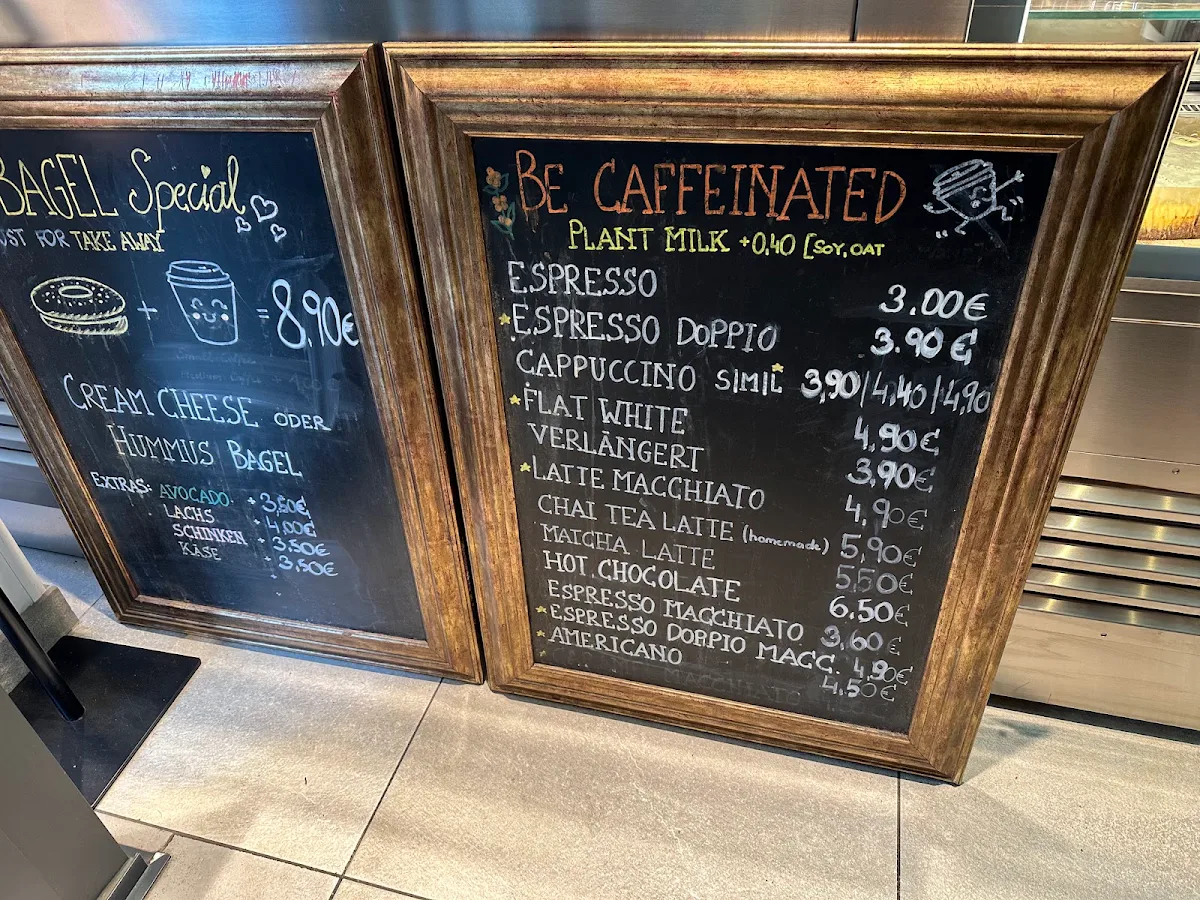 BAGEL Special
JUST FOR TAKE AWAY
+ = 8,90€
CREAM CHEESE ODER
HUMMUS BAGEL
EXTRAS: AVOCADO + 3,50€
LACHS + 4,00€
SCHINKEN + 3,50€
KÄSE + 3,50€
BE CAFFEINATED
PLANT MILK +0,40 [SOY, OAT
ESPRESSO 3.00€
ESPRESSO DOPPIO 3.90€
CAPPUCCINO S|M|L 3,90/4,40/4,90
FLAT WHITE 4,90€
VERLÄNGERT 3,90€
LATTE MACCHIATO 4,90€
CHAI TEA LATTE (homemade) 5,90€
MATCHA LATTE 5,50€
HOT CHOCOLATE 6.50€
ESPRESSO MACCHIATO 3,60€
ESPRESSO DOPPIO MACC. 4,90€
AMERICANO 4,50€
MACCHIATO